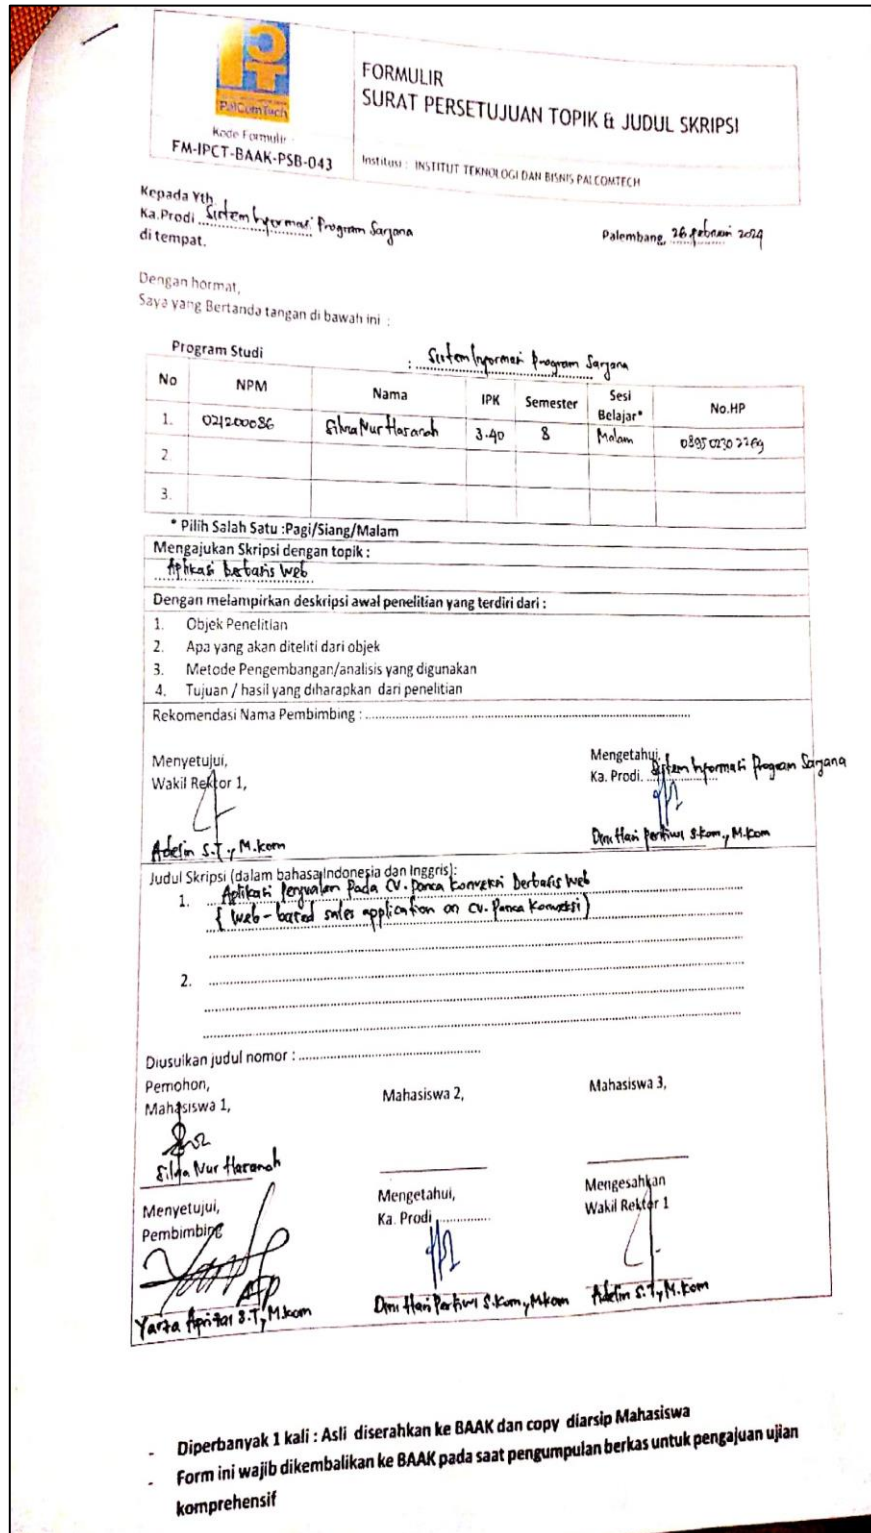 PalComTech
Kode Formulir :
FM-IPCT-BAAK-PSB-043
FORMULIR
SURAT PERSETUJUAN TOPIK & JUDUL SKRIPSI
Institusi : INSTITUT TEKNOLOGI DAN BISNIS PALCOMTECH
Kepada Yth.
Ka.Prodi Sistem Informasi Program Sarjana
di tempat.
Palembang, 26 februari 2024
Dengan hormat,
Saya yang Bertanda tangan di bawah ini :
Program Studi : Sistem Informasi Program Sarjana
No NPM Nama IPK Semester Sesi Belajar* No.HP
1. 021200086 Silna Nur Hasanah 3.40 8 Malam
2.
3.
* Pilih Salah Satu :Pagi/Siang/Malam
Mengajukan Skripsi dengan topik :
Aplikasi berbasis Web
Dengan melampirkan deskripsi awal penelitian yang terdiri dari :
1. Objek Penelitian
2. Apa yang akan diteliti dari objek
3. Metode Pengembangan/analisis yang digunakan
4. Tujuan / hasil yang diharapkan dari penelitian
Rekomendasi Nama Pembimbing :
Menyetujui,
Wakil Rektor 1,
Adelin S.T., M.kom
Mengetahui,
Ka. Prodi. Sistem Informasi Program Sarjana
Dini Hari Pertiwi S.kom., M.kom
Judul Skripsi (dalam bahasa Indonesia dan Inggris):
1. Aplikasi Penjualan Pada CV. Panca Konveksi berbasis Web
( Web-based sales application on CV. Panca Konveksi )
2.
Diusulkan judul nomor :
Pemohon,
Mahasiswa 1,
Mahasiswa 2,
Mahasiswa 3,
Nur Hasanah
Menyetujui,
Pembimbing
Yarza Aprizal S.T, M.kom
Mengetahui,
Ka. Prodi
Dini Hari Pertiwi S.Kom., M.kom
Mengesahkan
Wakil Rektor 1
Adelin S.T, M.kom
- Diperbanyak 1 kali : Asli diserahkan ke BAAK dan copy diarsip Mahasiswa
- Form ini wajib dikembalikan ke BAAK pada saat pengumpulan berkas untuk pengajuan ujian
komprehensif